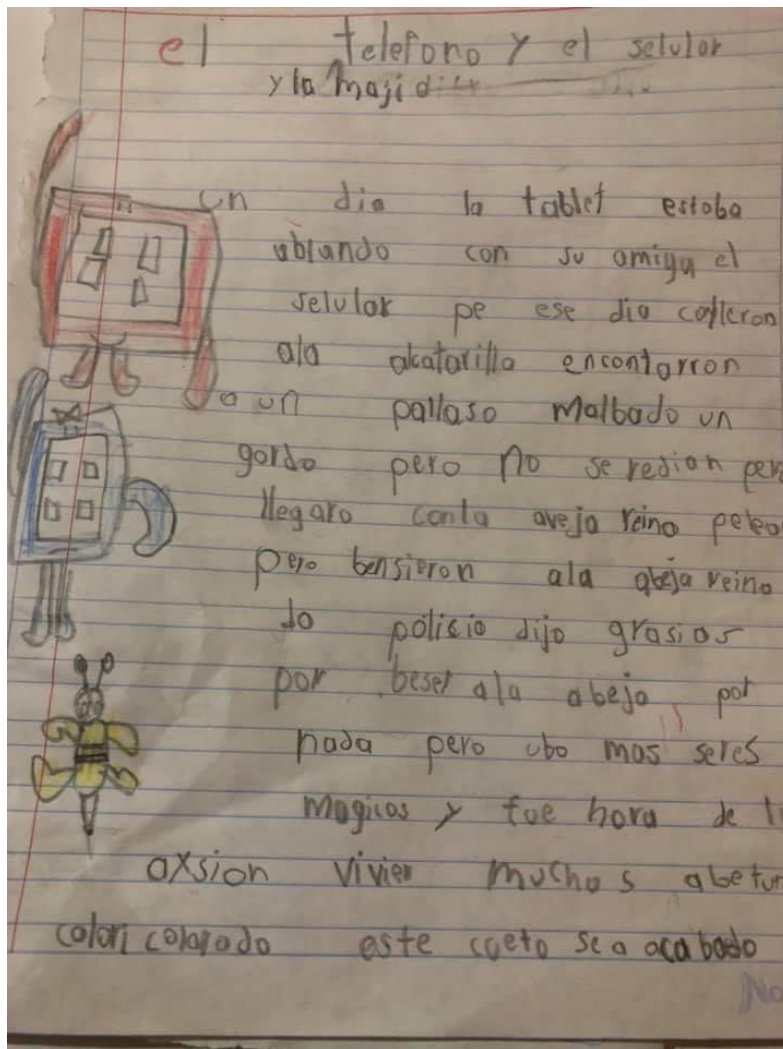 el telefono y el selular
y la maji
un dia la tablet estaba
ablando con su amiga el
selular pe ese dia calleron
ala alcatarilla encontarron
a un pallaso malbado un
gordo pero no se redian pero
llegaro conla aveja reina peleo
pero bensieron ala abeja reina
la polisia dijo grasias
por beser ala abeja por
nada pero ubo mas seres
magicos y fue hora de l
axsion vivier muchos abetur
colori colorado este cueto se a acabado
No